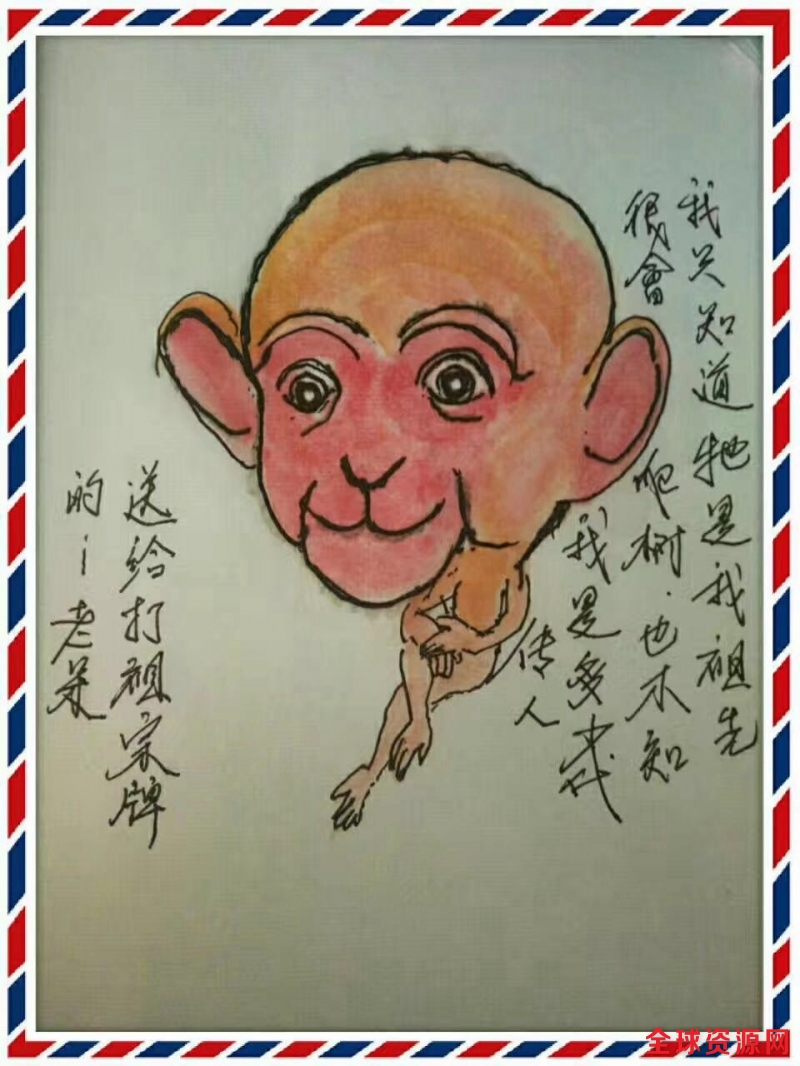 我只知道牠是我祖先
很會爬树.也不知
我是多少代
传人
送给打祖宗牌
的i老
全球资源网